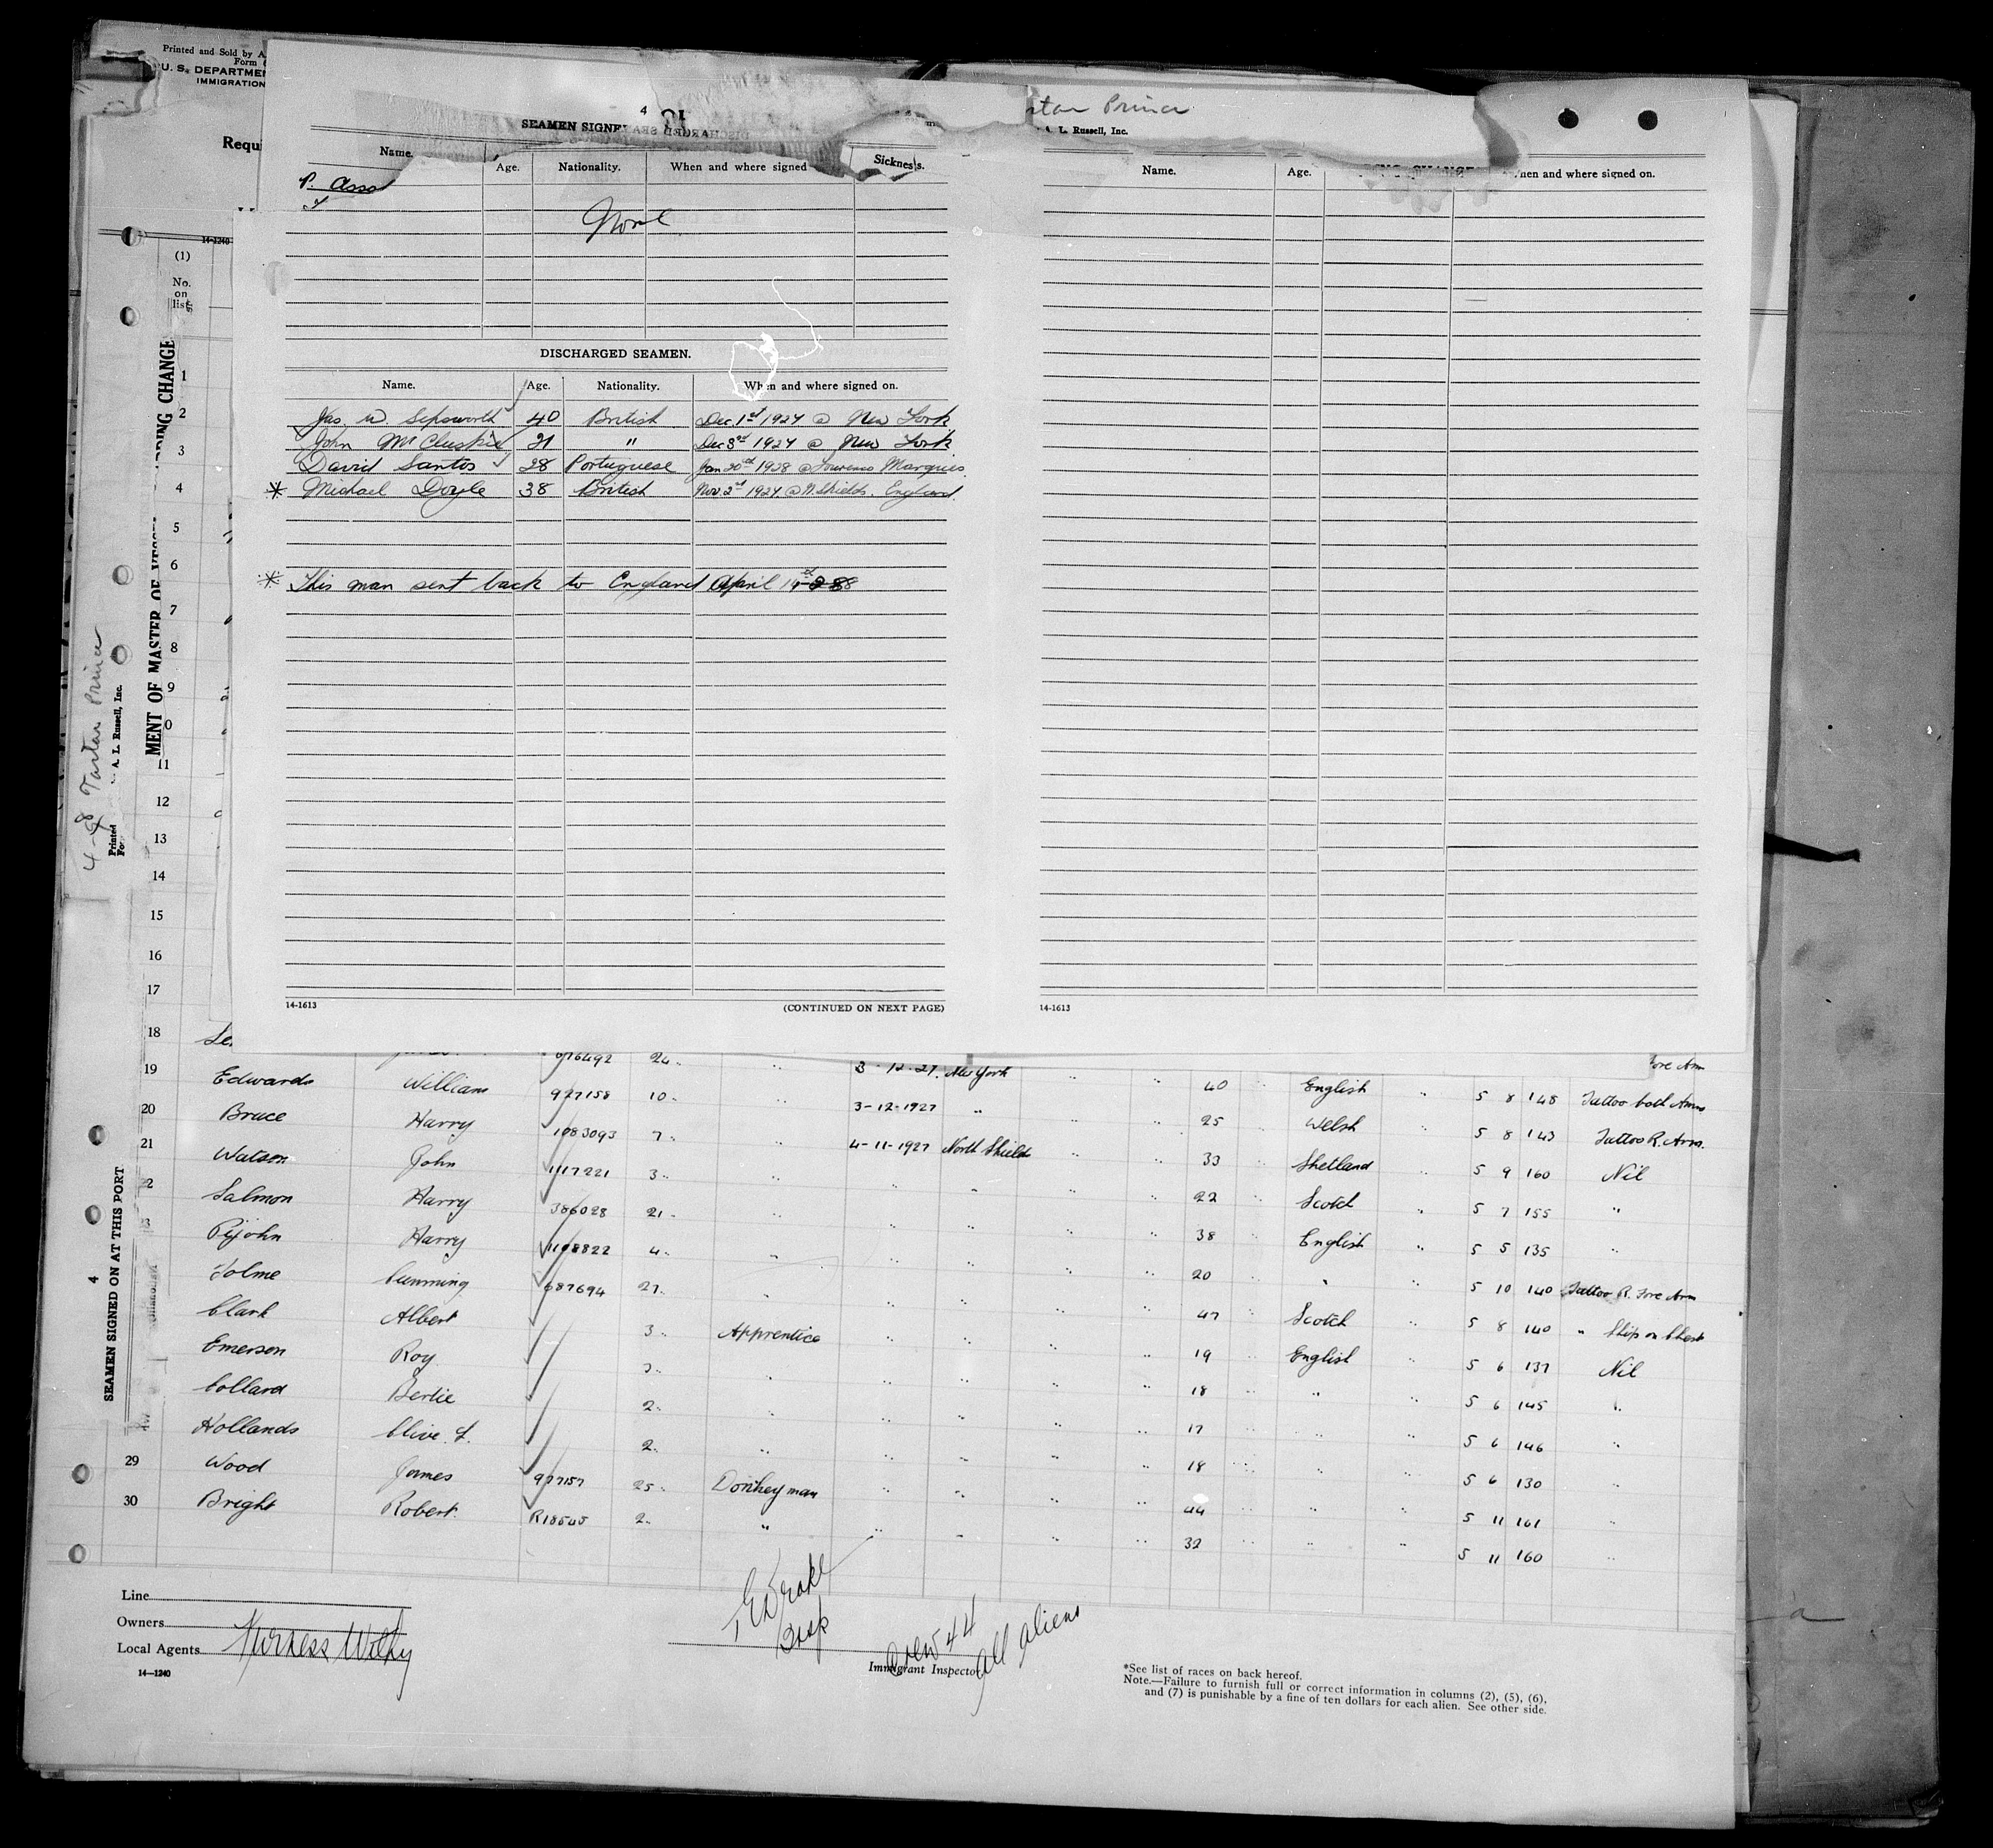 Printed and Sold by A.
Form
U. S. DEPARTME
IMMIGRATION
Requi
4
rtan Prince
A. L. Russell, Inc.
SEAMEN SIGNE
Name. Age. Nationality. When and where signed Sickness.
P.
None
DISCHARGED SEAMEN.
Name. Age. Nationality. When and where signed on.
Jas. W. Sepsworth 40 British Dec. 1st 1927 @ New York
John McCluskie 21 " Dec 3rd 1927 @ New York
David Santos 28 Portuguese Jan 20th 1928 @ Lourenco Marques
* Michael Doyle 38 British Nov. 2nd 1927 @ N. Shields. England.
* This man sent back to England April 14 28
14-1613 (CONTINUED ON NEXT PAGE)
Name. Age. hen and where signed on.
14-1613
14-1240
(1)
No.
on
list
1
2
3
4
5
6
7
8
9
0
11
12
13
14
15
16
17
18
19
20
21
22
23
29
30
MENT OF MASTER OF VESS
RDING CHANGE
4-98 Tartan Prince
Printed
A. L. Russell, Inc.
Fo
4
SEAMEN SIGNED ON AT THIS PORT
676492 24 " 3 - 12 - 27. New York " " 40 English " 5 8 148 Tattoo both Arms
ore Arm
Edwards William 927158 10 " 3-12-1927 " " " 25 Welsh " 5 8 143 Tattoo R. Arm.
Bruce Harry 1083093 7 " 4-11-1927 North Shields " " 33 Shetland " 5 9 160 Nil
Watson John 1117221 3 " " " " " 22 Scotch " 5 7 155 "
Salmon Harry 386028 21 " " " " " 38 English " 5 5 135 "
Pyjohn Harry 1108822 4 " " " " " 20 " " 5 10 140 Tattoo R. Fore Arm
Tolme Cumming 687694 27 " " " " " 47 Scotch " 5 8 140 " Ship on Chest
Clark Albert 3 Apprentice " " " " 19 English " 5 6 137 Nil
Emerson Roy 3 " " " " " 18 " " 5 6 145 "
Collard Bertie 2 " " " " " 17 " " 5 6 146 "
Hollands Clive. F. 2 " " " " " 18 " " 5 6 130 "
Wood James 927157 25 Donkeyman " " " " 44 " " 5 11 161 "
Bright Robert R18545 2 " " " " " 32 " " 5 11 160 "
Line
Owners
Local Agents Furness Withy
14—1240
Drake
Insp
Immigrant Inspector
Crew 44
All Aliens
*See list of races on back hereof.
Note.—Failure to furnish full or correct information in columns (2), (5), (6),
and (7) is punishable by a fine of ten dollars for each alien. See other side.